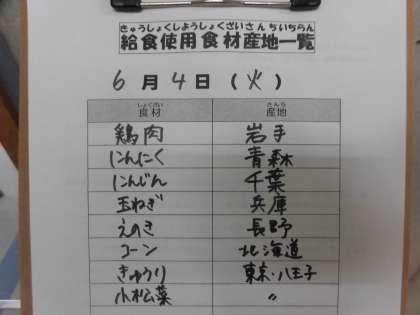 きゅうしょくしようしょくざいさんちいちらん
給食使用食材産地一覧
6月4日(火)
しょくざい さんち
食材 産地
鶏肉 岩手
にんにく 青森
にんじん 千葉
玉ねぎ 兵庫
えのき 長野
コーン 北海道
きゅうり 東京・八王子
小松菜 〃